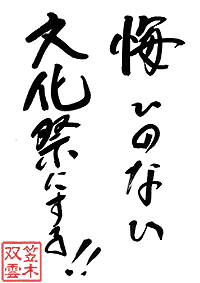 悔いのない
文化祭にする!!
笠木
双雲